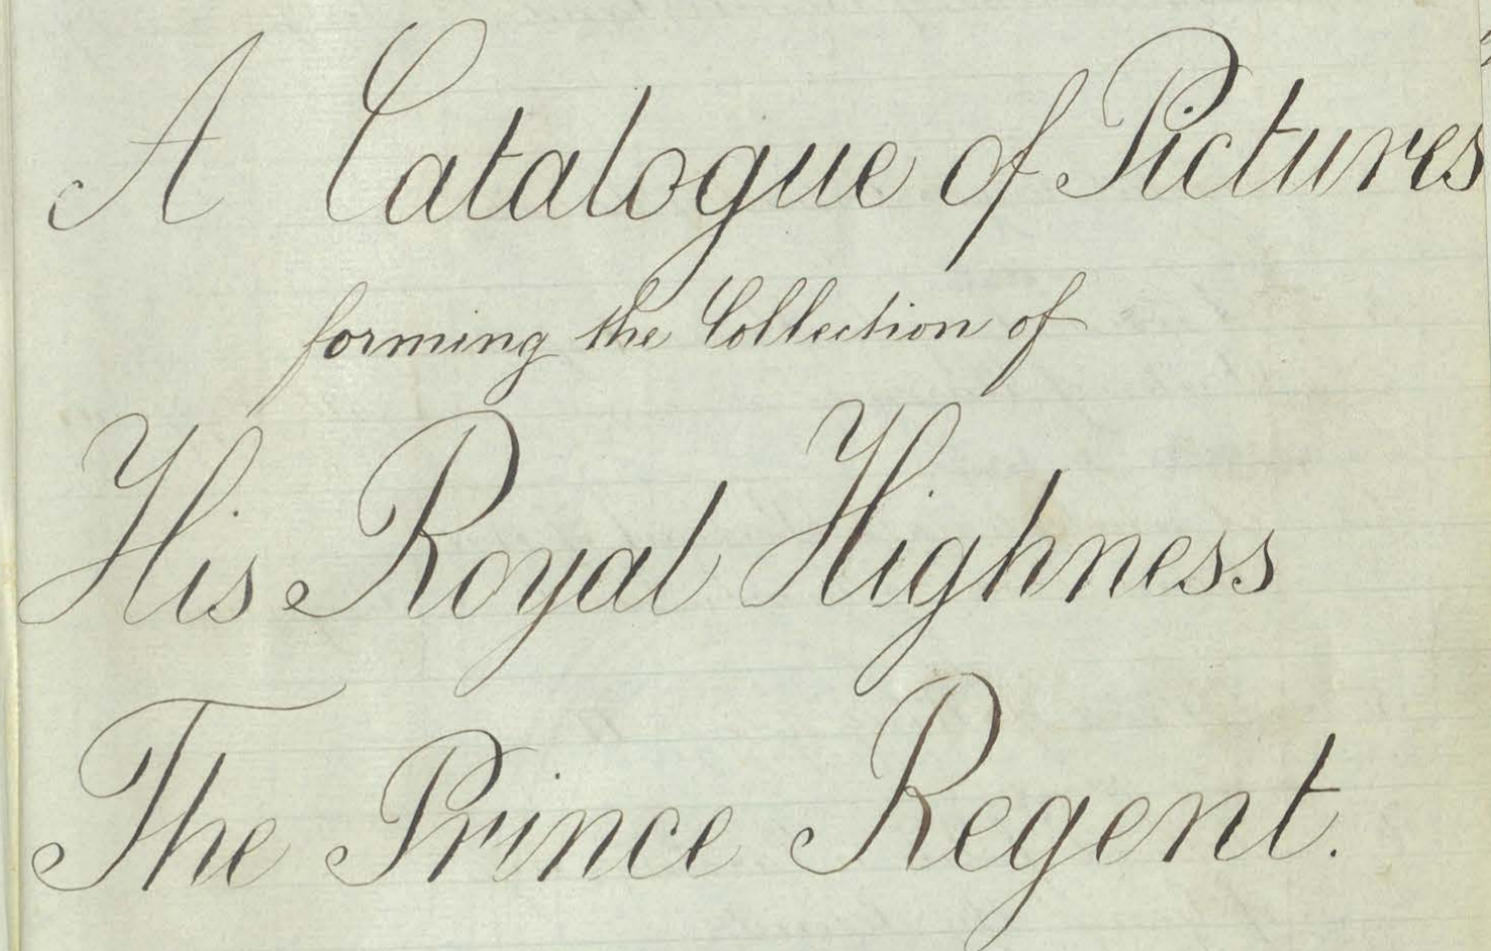 A Catalogue of Pictures
forming the Collection of
His Royal Highness
The Prince Regent.